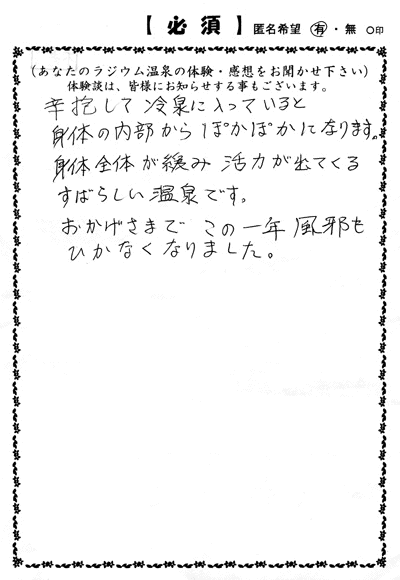 【 必 須 】 匿名希望 有・無 ○印
(あなたのラジウム温泉の体験・感想をお聞かせ下さい)
体験談は、皆様にお知らせする事もございます。
辛抱して冷泉に入っていると
身体の内部からぽかぽかになります。
身体全体が緩み 活力が出てくる
すばらしい温泉です。
おかげさまで この一年 風邪も
ひかなくなりました。